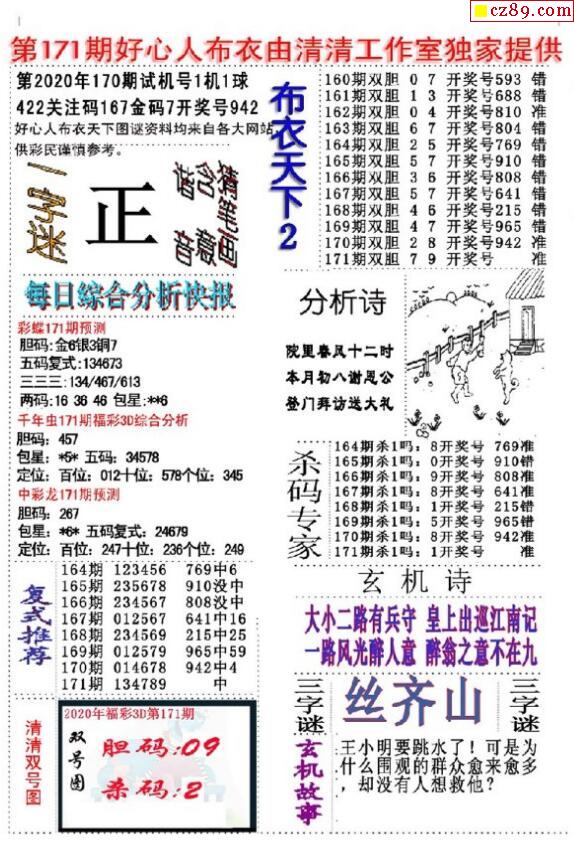 cz89.com
第171期好心人布衣由清清工作室独家提供
第2020年170期试机号1机1球
422关注码167金码7开奖号942
好心人布衣天下图谜资料均来自各大网站,
供彩民谨慎参考。
一字迷
正
每日综合分析快报
彩蝶171期预测
胆码:金6银3铜7
五码复式:134673
三三三:134/467/613
两码:16 36 46 包星:**6
千年虫171期福彩3D综合分析
胆码: 457
包星: *5* 五码: 34578
定位: 百位: 012十位: 578个位: 345
中彩龙171期预测
胆码: 267
包星: *6* 五码复式: 24679
定位: 百位: 247十位: 236个位: 249
复式推荐
164期 123456 769中6
165期 235678 910没中
166期 234567 808没中
167期 012567 641中16
168期 234569 215中25
169期 012579 965中59
170期 014678 942中4
171期 134789 中
清清双号图
2020年福彩3D第171期
双号图
胆码:09
杀码:2
布衣天下2
160期双胆 0 7 开奖号593 错
161期双胆 1 3 开奖号688 错
162期双胆 0 4 开奖号810 准
163期双胆 6 7 开奖号804 错
164期双胆 2 5 开奖号769 错
165期双胆 5 7 开奖号910 错
166期双胆 3 6 开奖号808 错
167期双胆 5 7 开奖号641 错
168期双胆 4 6 开奖号215 错
169期双胆 4 7 开奖号965 错
170期双胆 2 8 开奖号942 准
171期双胆 7 9 开奖号 准
分析诗
院里春风十二时
本月初八谢恩公
登门拜访送大礼
杀码专家
164期杀1吗: 8开奖号 769准
165期杀1吗: 0开奖号 910错
166期杀1吗: 9开奖号 808准
167期杀1吗: 8开奖号 641准
168期杀1吗: 1开奖号 215错
169期杀1吗: 5开奖号 965错
170期杀1吗: 8开奖号 942准
171期杀1吗: 1开奖号 准
玄机诗
大小二路有兵守 皇上出巡江南记
一路风光醉人意 醉翁之意不在九
三字谜
丝齐山
三字谜
玄机故事
王小明要跳水了！可是为
什么围观的群众愈来愈多
，却没有人想救他？